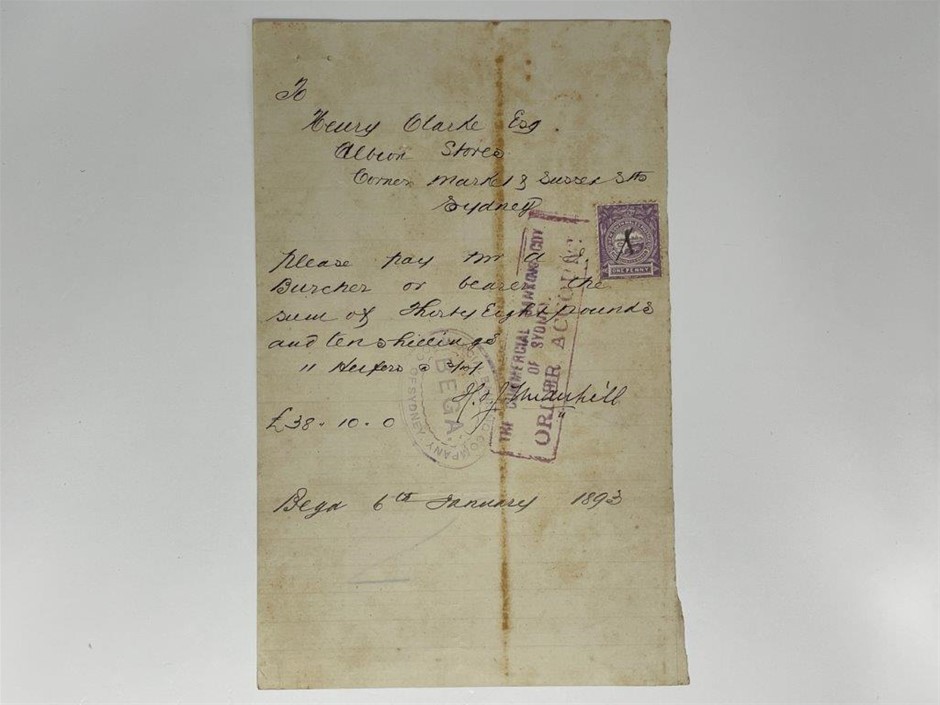 To
Henry Clarke Esq
Albion Stores
Corner Market & Sussex Sts
Sydney
Please pay Mr A
Burcher or bearer the
sum of Thirty Eight pounds
and ten shillings
11 Heifers @
£38-10-0
Bega 6th January 1893
ONE PENNY
THE COMMERCIAL BANKING COY
OF SYDNEY
ORDER ACCOUNT
BANKING COMPANY OF SYDNEY
BEGA